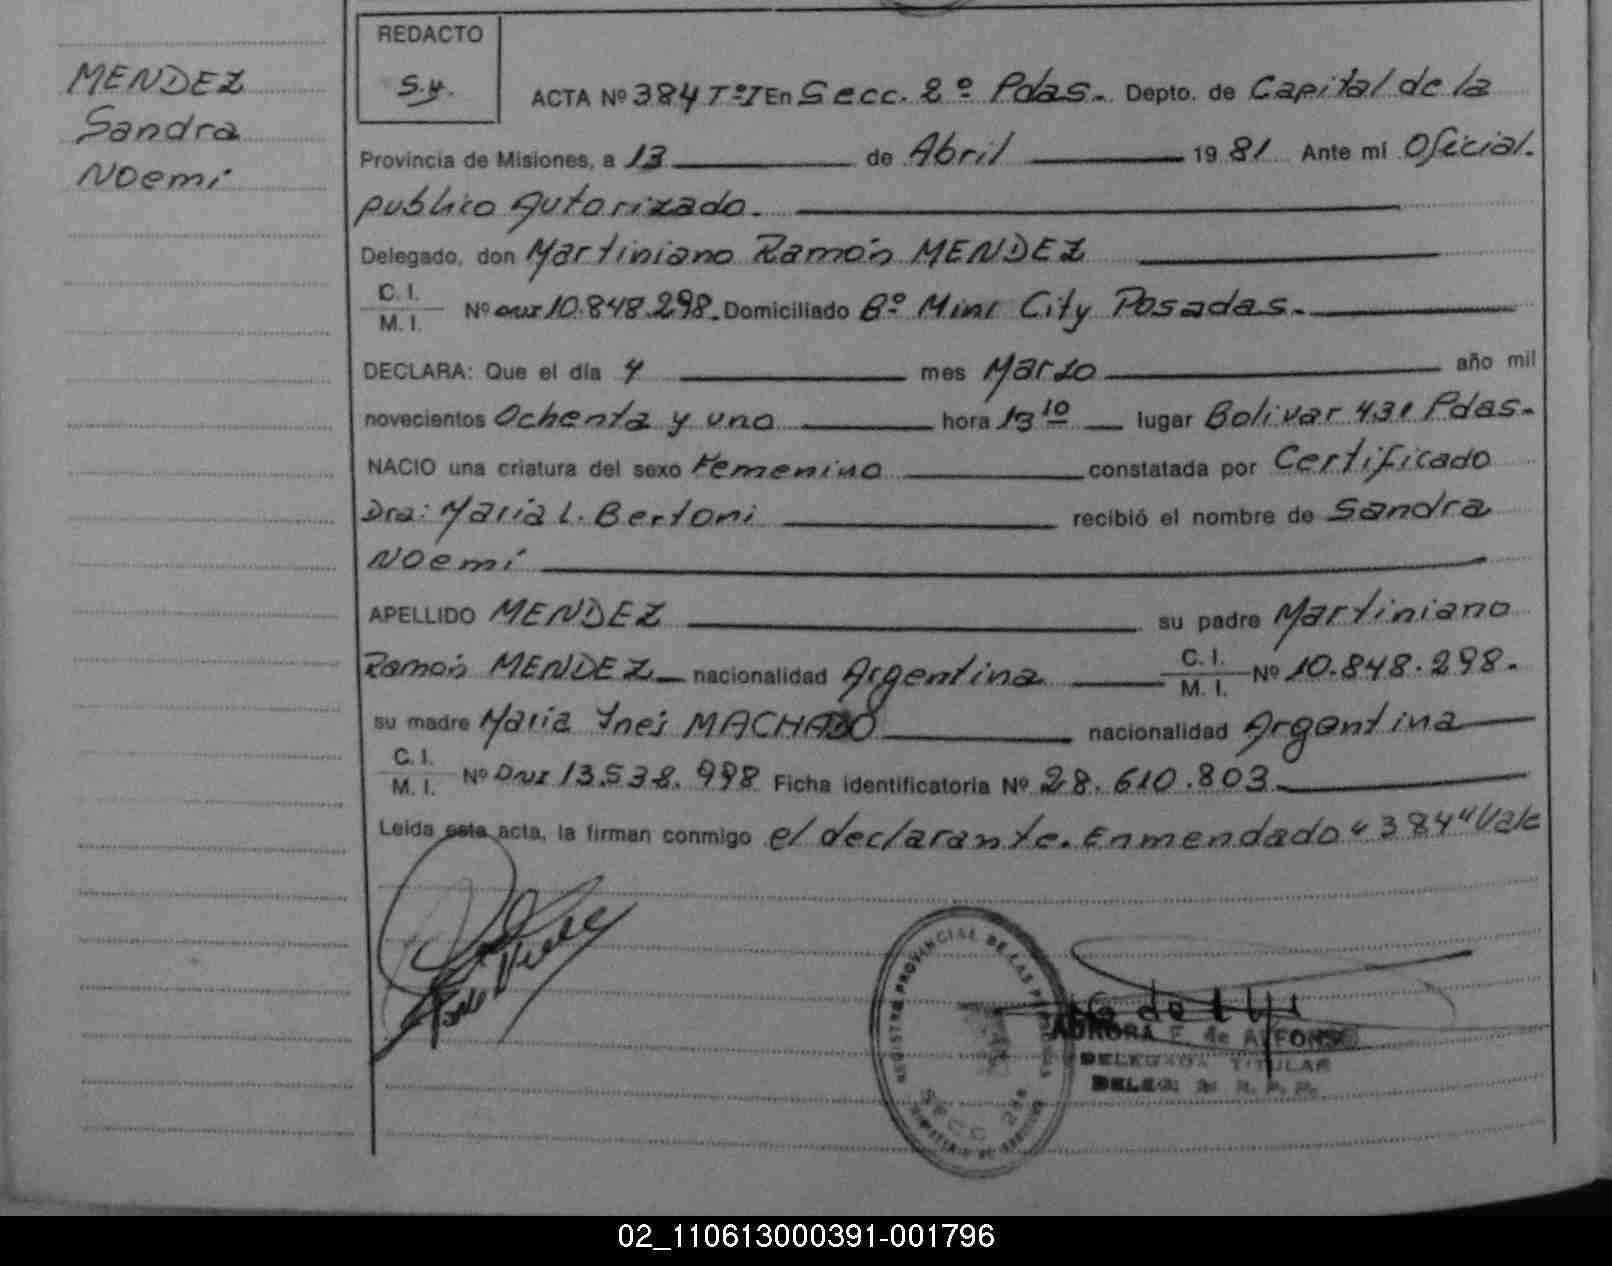 MENDEZ
Sandra
Noemí
REDACTO
S.y.
ACTA Nº 384 TºI En Secc. 2º Pdas. Depto. de Capital de la
Provincia de Misiones, a 13 de Abril 1981 Ante mí Oficial
publico Autorizado.
Delegado, don Martiniano Ramón MENDEZ
C. I.
M. I. Nº DNI 10.848.298. Domiciliado Bº Mini City Posadas.
DECLARA: Que el día 4 mes Marzo año mil
novecientos Ochenta y uno hora 13 10 lugar Bolivar 431 Pdas.
NACIO una criatura del sexo Femenino constatada por Certificado
Dra: Maria L. Bertoni recibió el nombre de Sandra
Noemí
APELLIDO MENDEZ su padre Martiniano
Ramón MENDEZ nacionalidad Argentina C. I. M. I. Nº 10.848.298.
su madre Maria Inés MACHADO nacionalidad Argentina
C. I.
M. I. Nº DNI 13.538.998 Ficha identificatoria Nº 28.610.803
Leída esta acta, la firman conmigo el declarante. Enmendado "384" Vale
REGISTRO PROVINCIAL DE LAS PERSONAS
SECC 2da
AURORA E. de ALFONSO
DELEGADA TITULAR
DELEG. R. P. P.
02_110613000391-001796